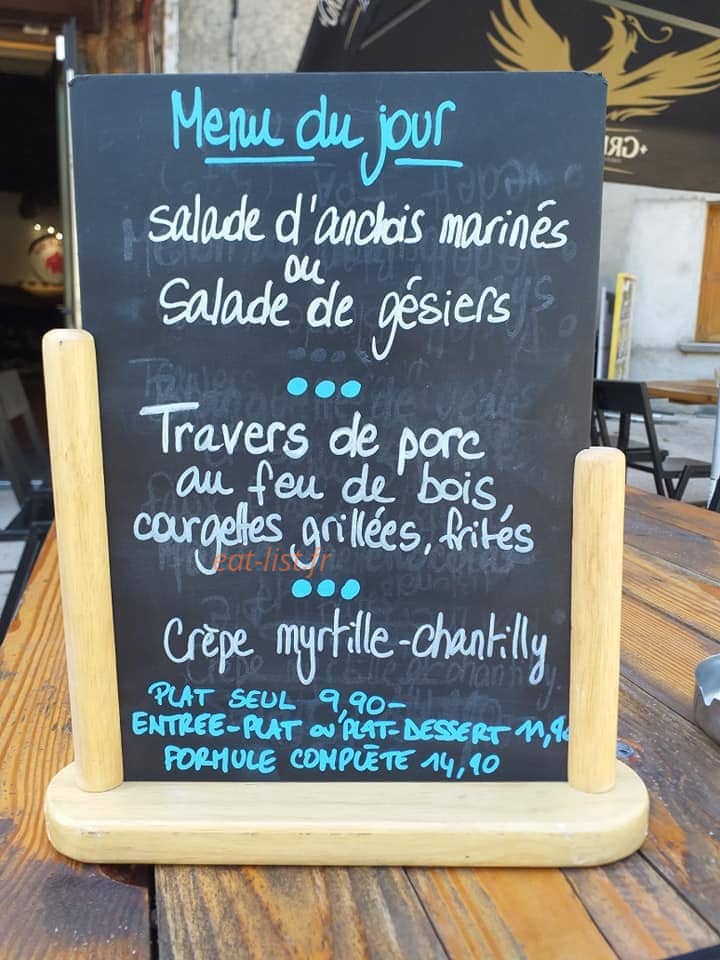 Menu du jour
salade d'anchois marinés
ou
Salade de gésiers
Travers de porc
au feu de bois,
courgettes grillées, frites
eat-list.fr
Crèpe myrtille-chantilly
PLAT SEUL 9,90-
ENTREE-PLAT OU PLAT-DESSERT 11,90
FORMULE COMPLÈTE 14,90